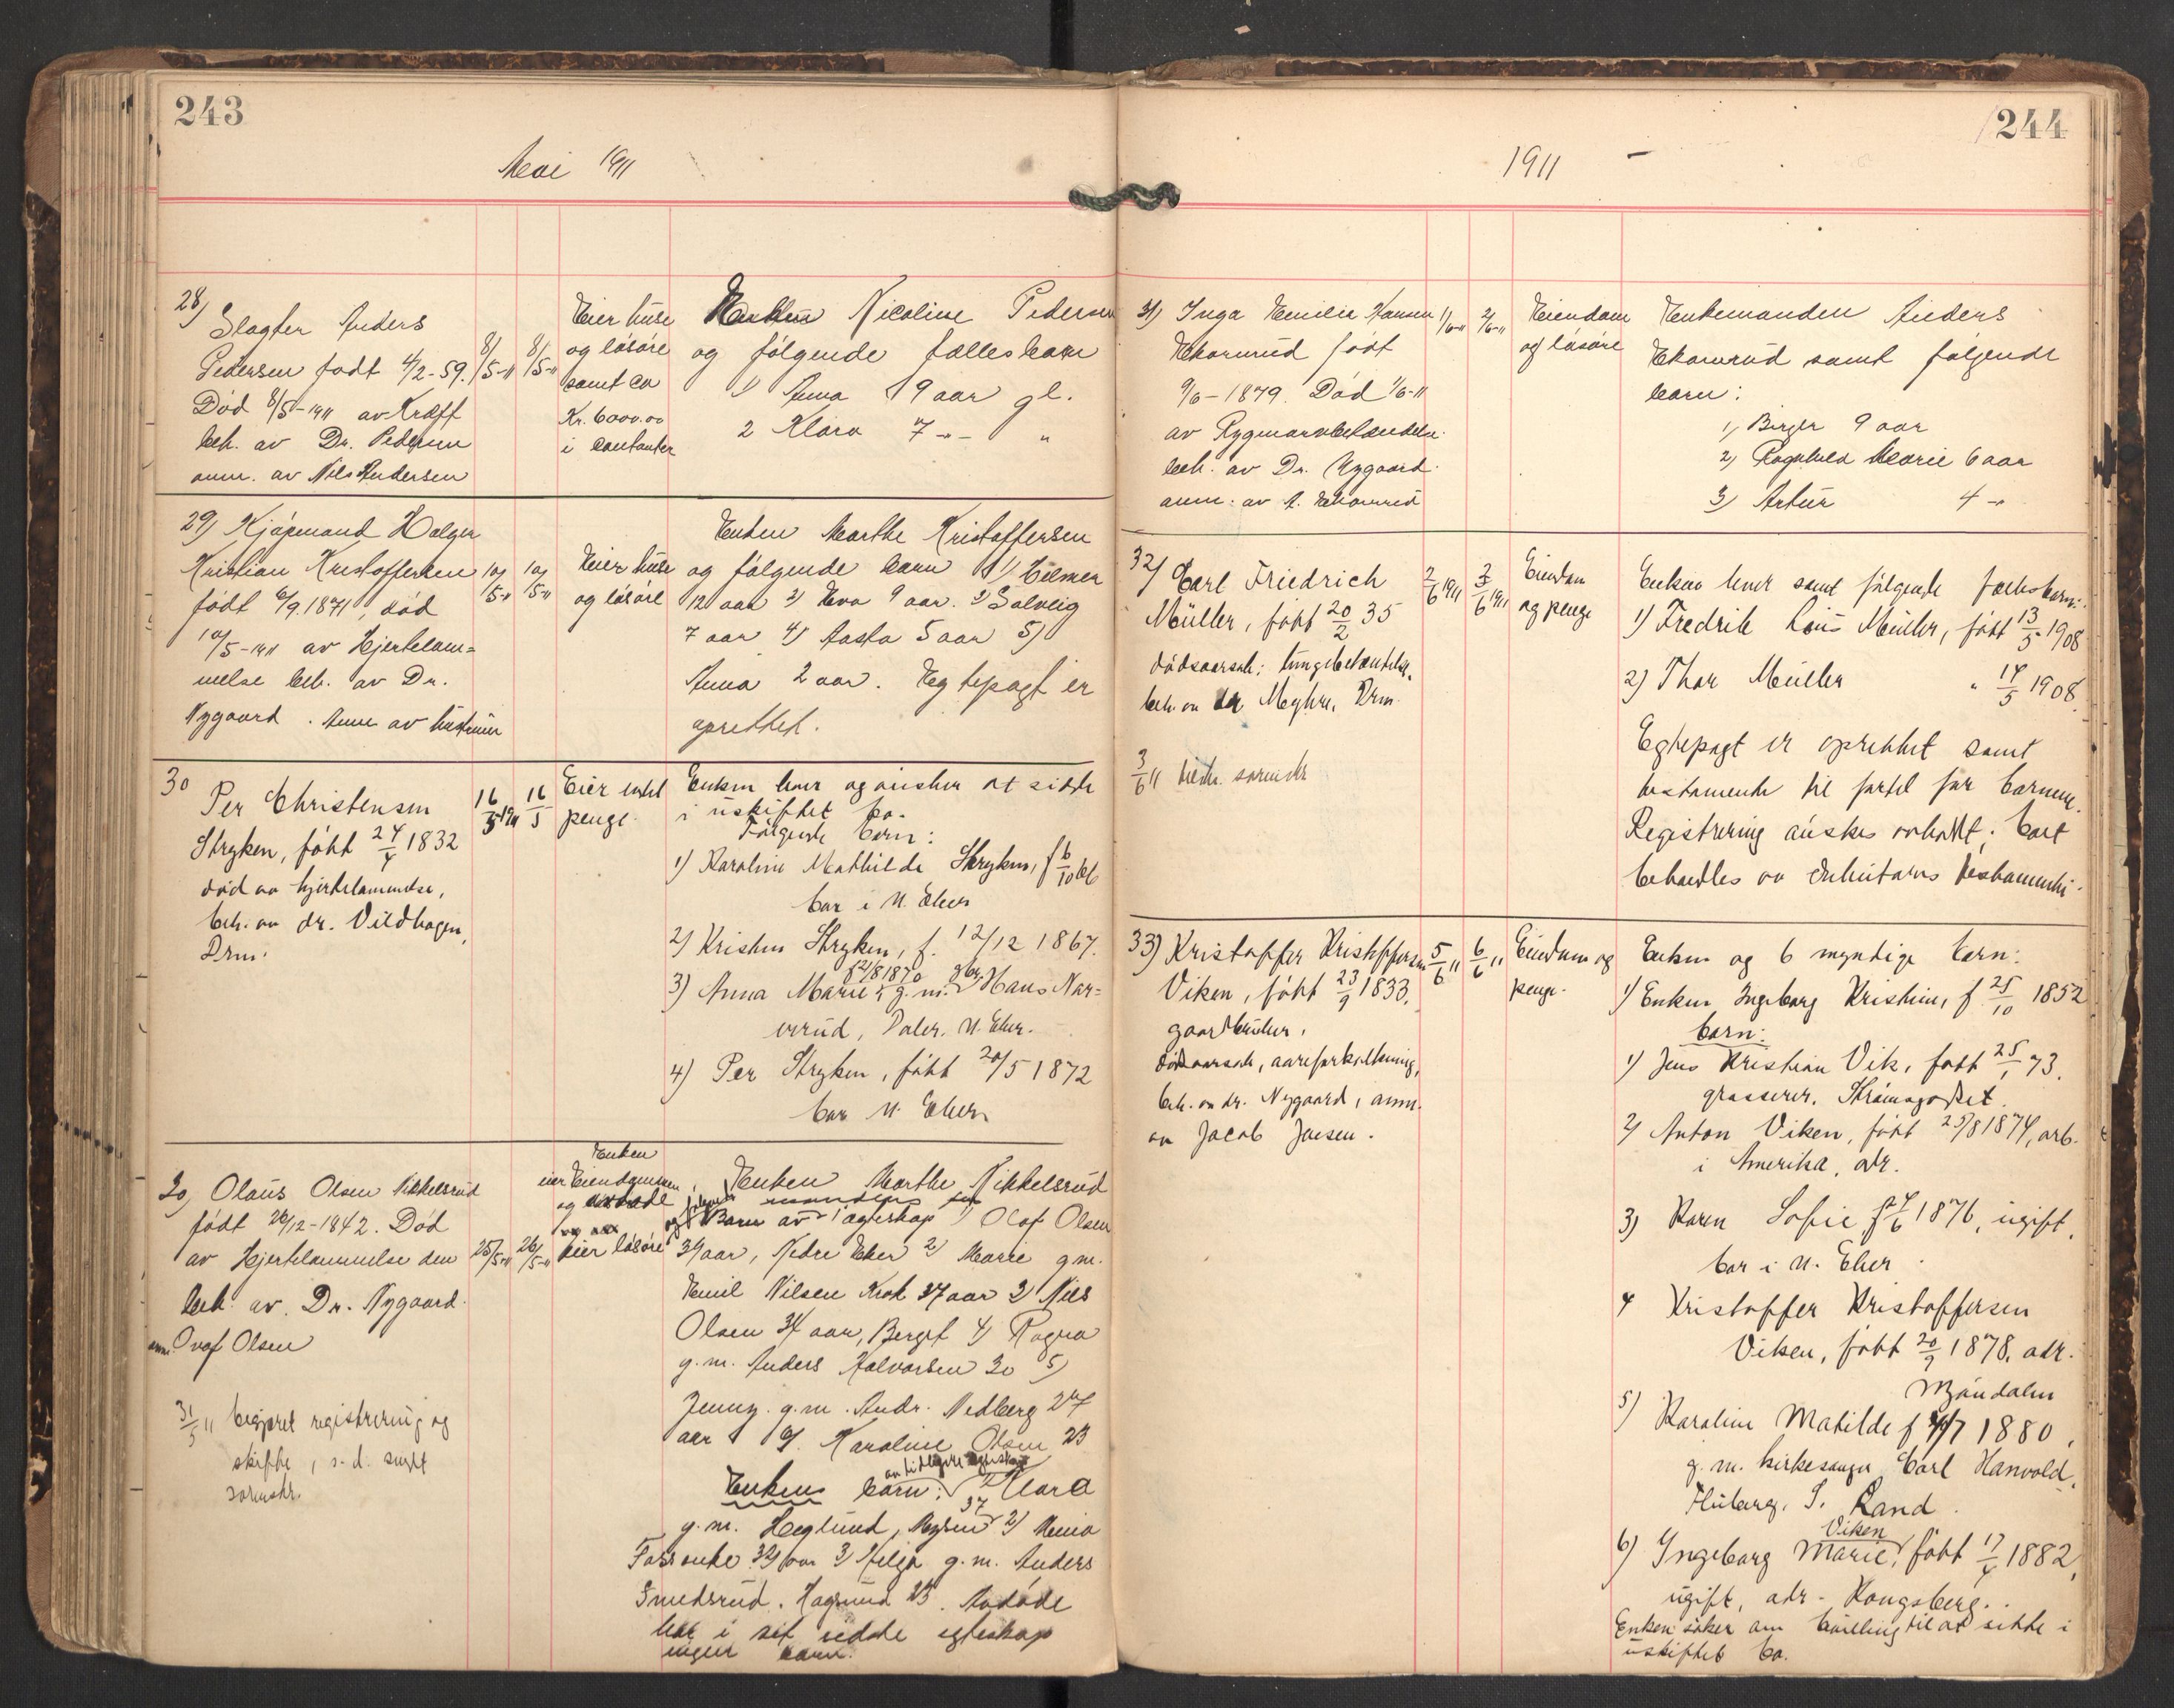 243
Mai 1911
28)
Slagter Anders
Pedersen født 4/2-59.
Død 8/5-1911 av Kræft
beh. av Dr. Pedersen
anm. av Nils Andersen
8/5-11
8/5-11
Eier huse
og løsøre
samt ca
Kr. 6000.00
i contanter
Enken Nicoline Pedersen
og følgende fællesbarn
1) Anna 19 aar gl.
2 Klara 7 -"- "
29) Kjøpmand Holger
Kristian Kristoffersen
født 6/9.1871, død
10/5-1911 av Hjertelam=
melse beh. av Dr.
Nygaard. Anm av hustruen
10/5-11
10/5-11
Eier huse
og løsøre
Enken Marthe Kristoffersen
og følgende barn 1) Hilmer
12 aar 2) Eva 9 aar. 3) Solveig
7 aar 4) Aasta 5 aar 5)
Anna 2 aar. Egtepagt er
oprettet.
30
Per Christensen
Stryken, født 24/4 1832
død av hjertelammelse,
beh. av dr. Vildhagen,
Drm.
16/5 1911
16/5
Eier endel
penge.
Enken lever og ønsker at sidde
i uskiftet bo.
Følgende børn:
1) Karoline Mathilde Stryken, f 6/10 66
bor i N. Eker
2) Kristen Stryken, f. 12/12 1867.
3) Anna Marie f 21/8 1870 g.m. Hans Nar=
verud, Daler. N. Eker.
4) Per Stryken, født 20/5 1872
bor N. Eker
30, Olaus Olsen Mikkelsrud
født 26/12-1842. Død
av Hjertelammelse den
beh. av. Dr. Nygaard.
anm. Ovaf Olsen
31/5 11 begjæret registrering og
skifte, s. d. sendt
sorenskr.
25/5-11
26/5-11
Enken
eier Eiendommen
og avdøde
eier løsøre
Enken Marthe Mikkelsrud
og følgende Barn av 1 ægteskap 1) Olaf Olsen
39 aar, Nedre Eker 2) Marie g.m.
Emil Nilsen Krok 37 aar 3) Nils
Olsen 34 aar, Berget 4) Ragna
g.m. Anders Halvorsen 30 5)
Jenny. g.m. Andr. Nedberg 27
aar 6). Karoline Olsen 23
av tidligere egteskap
Enkens børn: 1) Clara
g.m. Høglund, 37 2) Mina
Fossouke 32 aar 3) Helga g.m. Anders
Smedsrud. Hagsund 23. Avdøde
har i sit sidste egteskap
ingen barn.
244
1911 -
31) Inga Emilie Hansen
Ekornrud født
9/6-1879. Død 1/6-11
av Rygmarvbetændelse
beh. av Dr. Nygaard.
anm. av A. Ekornrud
1/6-11
2/6-11
Eiendom
og løsøre
Enkemanden Anders
Ekornrud samt følgende
barn:
1) Birger 9 aar
2) Ragnhild Marie 6 aar
3) Artur 4 -"
32) Carl Friedrich
Müller, født 20/2 35
dødsaarsak: lungebetændelse,
beh. av dr Meyhre, Drm.
3/6 11 tilskr. sorenskr
2/6 1911
3/6 1911
Eiendom
og penge
Enken lever samt følgende fællesbarn:
1) Fredrik Louis Müller, født 13/5 1908
2) Thor Müller " 14/5 1908.
Egtepagt er oprettet samt
testamente til fordel for barnene.
Registrering ønskes avholdt; boet
behandles av Enkens
33) Kristoffer Kristoffersen
Viken, født 23/9 1833,
gaardbruker,
dødsaarsak, aareforkalkning,
beh. av dr. Nygaard, anm.
av Jacob Jensen.
5/6 11
6/6 11
Eiendom og
penge.
Enken og 6 myndige børn:
1) Enken Ingeborg Kristine, f 25/10 1852
børn:
1) Jens Kristian Vik, født 25/1 73,
grosserer. Strømsgodset.
2) Anton Viken, født 25/8 1874, arb.
i Amerika, adr.
3) Karen Sofie f 24/6 1876, ugift,
bor i N. Eker.
4 Kristoffer Kristoffersen
Viken, født 20/9 1878, adr.
Mjøndalen
5) Karoline Matilde f 1880,
g.m. kirkesanger Carl Hanvold,
Fluberg, S. Land.
6) Ingeborg Marie Viken, født 17/4 1882,
ugift, adr - Kongsberg..
Enken søker om bevilling til at sidde i
uskiftet bo.